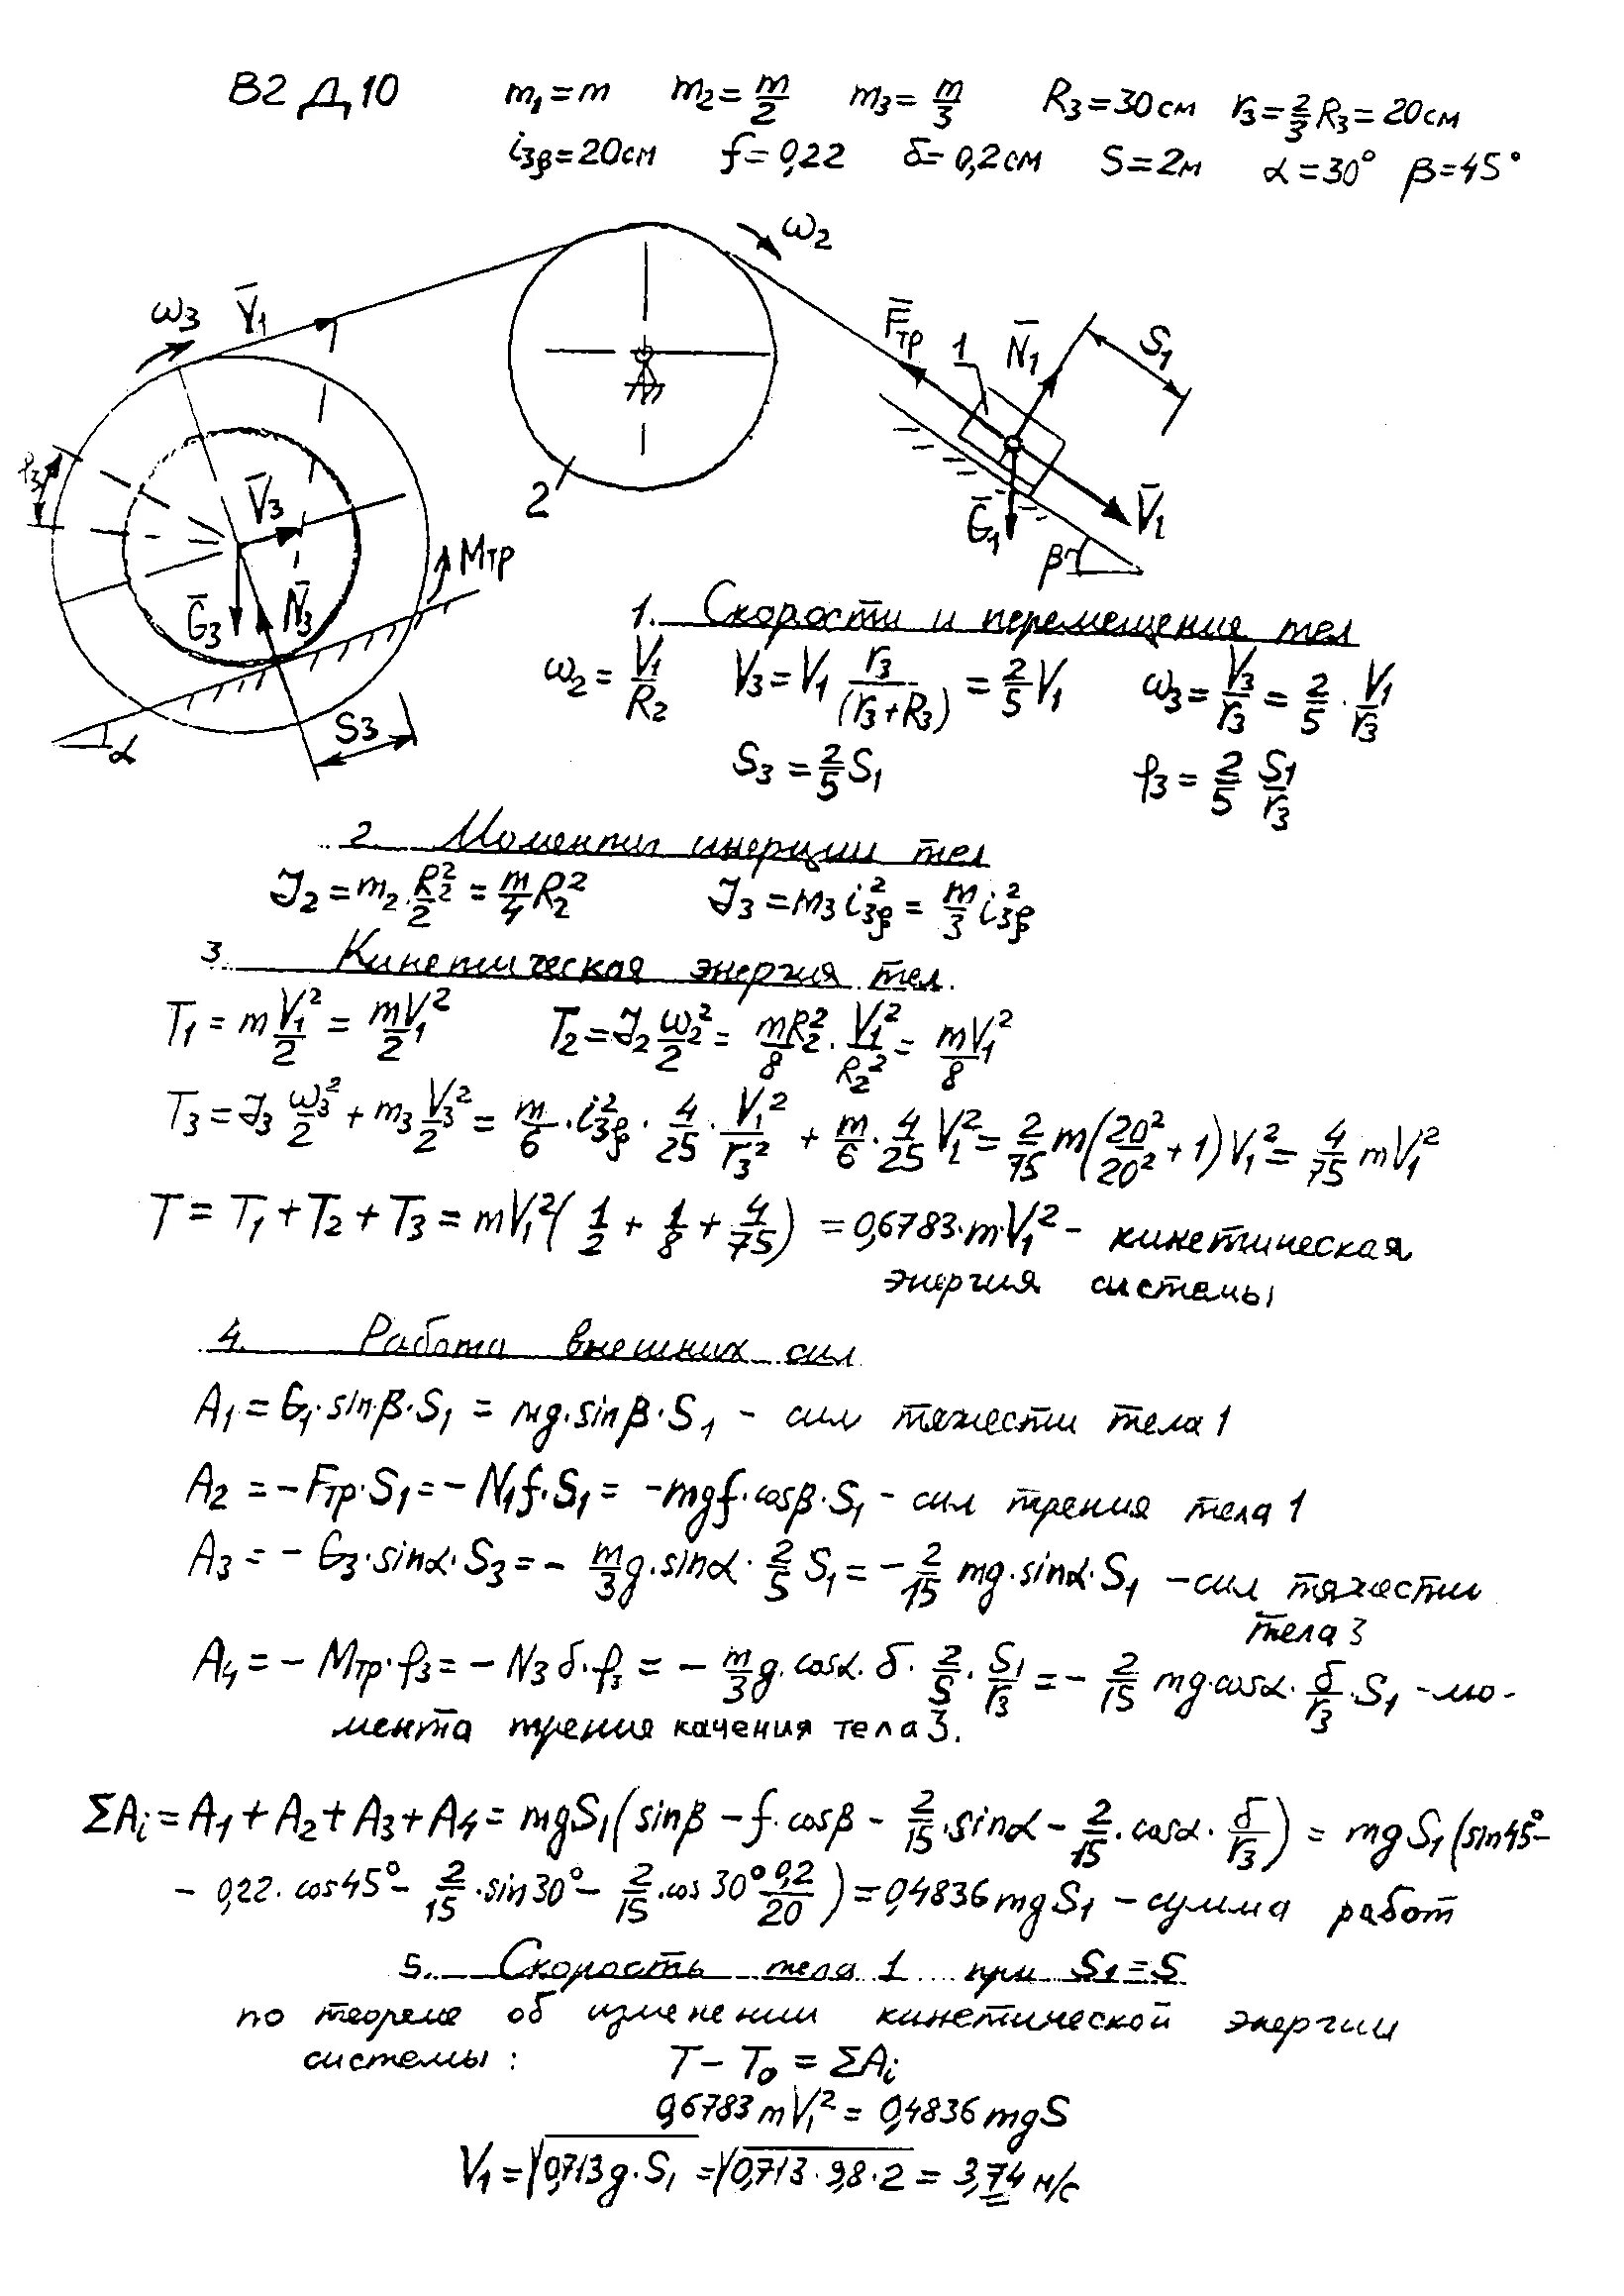 В2 Д10 m₁=m m₂=m/2 m₃=m/3 R₃=30см r₃=2/3 R₃=20см
i₃ξ=20см f=0,22 δ=0,2см S=2м α=30° β=45°
ω₂
ω₃ V̄₁ F̄тр 1 N̄₁ S₁
φ₃ V̄₃ 2 Ḡ₁ V̄₁
Mтр β
Ḡ₃ N̄₃
S₃ α
1. Скорости и перемещения тел
ω₂ = V₁/R₂ V₃=V₁ r₃/(r₃+R₃) = 2/5 V₁ ω₃ = V₃/r₃ = 2/5 · V₁/r₃
S₃ = 2/5 S₁ φ₃ = 2/5 S₁/r₃
2. Моменты инерции тел
J₂ = m₂·R₂²/2 = m/4 R₂² J₃ = m₃ i₃ξ² = m/3 i₃ξ²
3. Кинетическая энергия тел.
T₁ = m V₁²/2 = mV₁²/2 T₂ = J₂ ω₂²/2 = mR₂²/8 · V₁²/R₂² = mV₁²/8
T₃ = J₃ ω₃²/2 + m₃ V₃²/2 = m/6 · i₃ξ² · 4/25 · V₁²/r₃² + m/6 · 4/25 V₁² = 2/75 m(20²/20² + 1)V₁² = 4/75 mV₁²
T = T₁ + T₂ + T₃ = mV₁²(1/2 + 1/8 + 4/75) = 0,6783·m·V₁² – кинетическая
энергия системы
4. Работа внешних сил
A₁ = G₁·sinβ·S₁ = mg·sinβ·S₁ – сил тяжести тела 1
A₂ = –Fтр·S₁ = –N₁f·S₁ = –mgf·cosβ·S₁ – сил трения тела 1
A₃ = –G₃·sinα·S₃ = – m/3 g·sinα · 2/5 S₁ = – 2/15 mg·sinα·S₁ – сил тяжести
тела 3
A₄ = –Mтр·φ₃ = –N₃ δ·φ₃ = – m/3 g·cosα·δ · 2/5 · S₁/r₃ = – 2/15 mg·cosα · δ/r₃ · S₁ – мо-
мента трения качения тела 3.
ΣAᵢ = A₁ + A₂ + A₃ + A₄ = mgS₁(sinβ – f·cosβ – 2/15·sinα – 2/15·cosα · δ/r₃) = mgS₁(sin45° –
– 0,22·cos45° – 2/15·sin30° – 2/15·cos30° 0,2/20) = 0,4836mgS₁ – сумма работ
5. Скорость тела 1 при S₁=S
по теореме об изменении кинетической энергии
системы: T – T₀ = ΣAᵢ
0,6783mV₁² = 0,4836mgS
V₁ = √0,713g·S₁ = √0,713·9,8·2 = 3,74 м/с